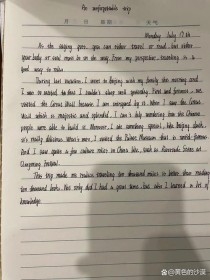 An unforgettable trip
Monday July 17th
As the saying goes, you can either travel or read, but either
your body or soul must be on the way. From my perspective, traveling is a
good way to relax.
During last vacation, I went to Beijing with my family. One morning and
I was so excited that I couldn't sleep and quietly. First and foremost, we
visited the Great Wall because I am intrigued by it. When I saw the Great
Wall which is majestic and splendid, I can't help wondering how the Chinese
people were able to build it. Moreover, I ate something special, like Beijing duck.
It's really delicious. What's more, I visited the Palace Museum that is world-famous.
And I saw quite a few culture relics in China here, such as Riverside Scene at
Qingming Festival.
This trip made me realize traveling ten thousand miles is better than reading
ten thousand books. Not only did I had a great time, but also I learned a lot of
knowledge.
@黄色的沙漠